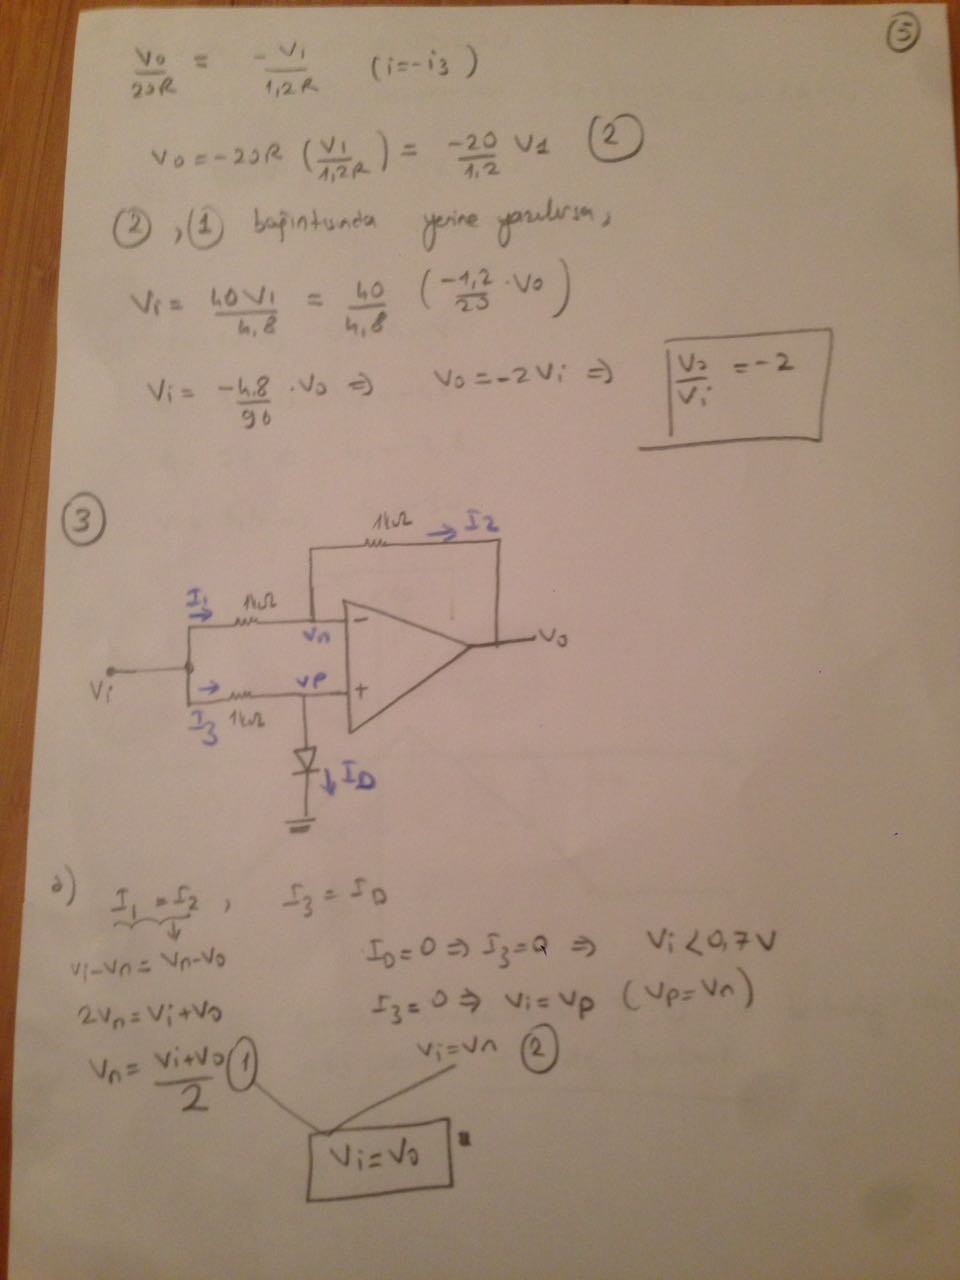 5
V0/20R = -V1/1,2R (i=-i3)
V0 = -20R (V1/1,2R) = -20/1,2 V1 2
2 , 1 bağıntısında yerine yazılırsa,
Vi = 40V1/4,8 = 40/4,8 (-1,2/20 · V0)
Vi = -4,8/90 · V0 ⇒ V0 = -2Vi ⇒ V0/Vi = -2
3
1kΩ I2
Ii 1kΩ
Vn −
V0
Vi
VP +
I3 1kΩ
ID
a) I1 = I2 , I3 = ID
Vi-Vn = Vn-V0 ID=0 ⇒ I3=0 ⇒ Vi<0,7V
2Vn = Vi+V0 I3=0 ⇒ Vi=Vp (Vp=Vn)
Vn = Vi+V0/2 1 Vi=Vn 2
Vi=V0